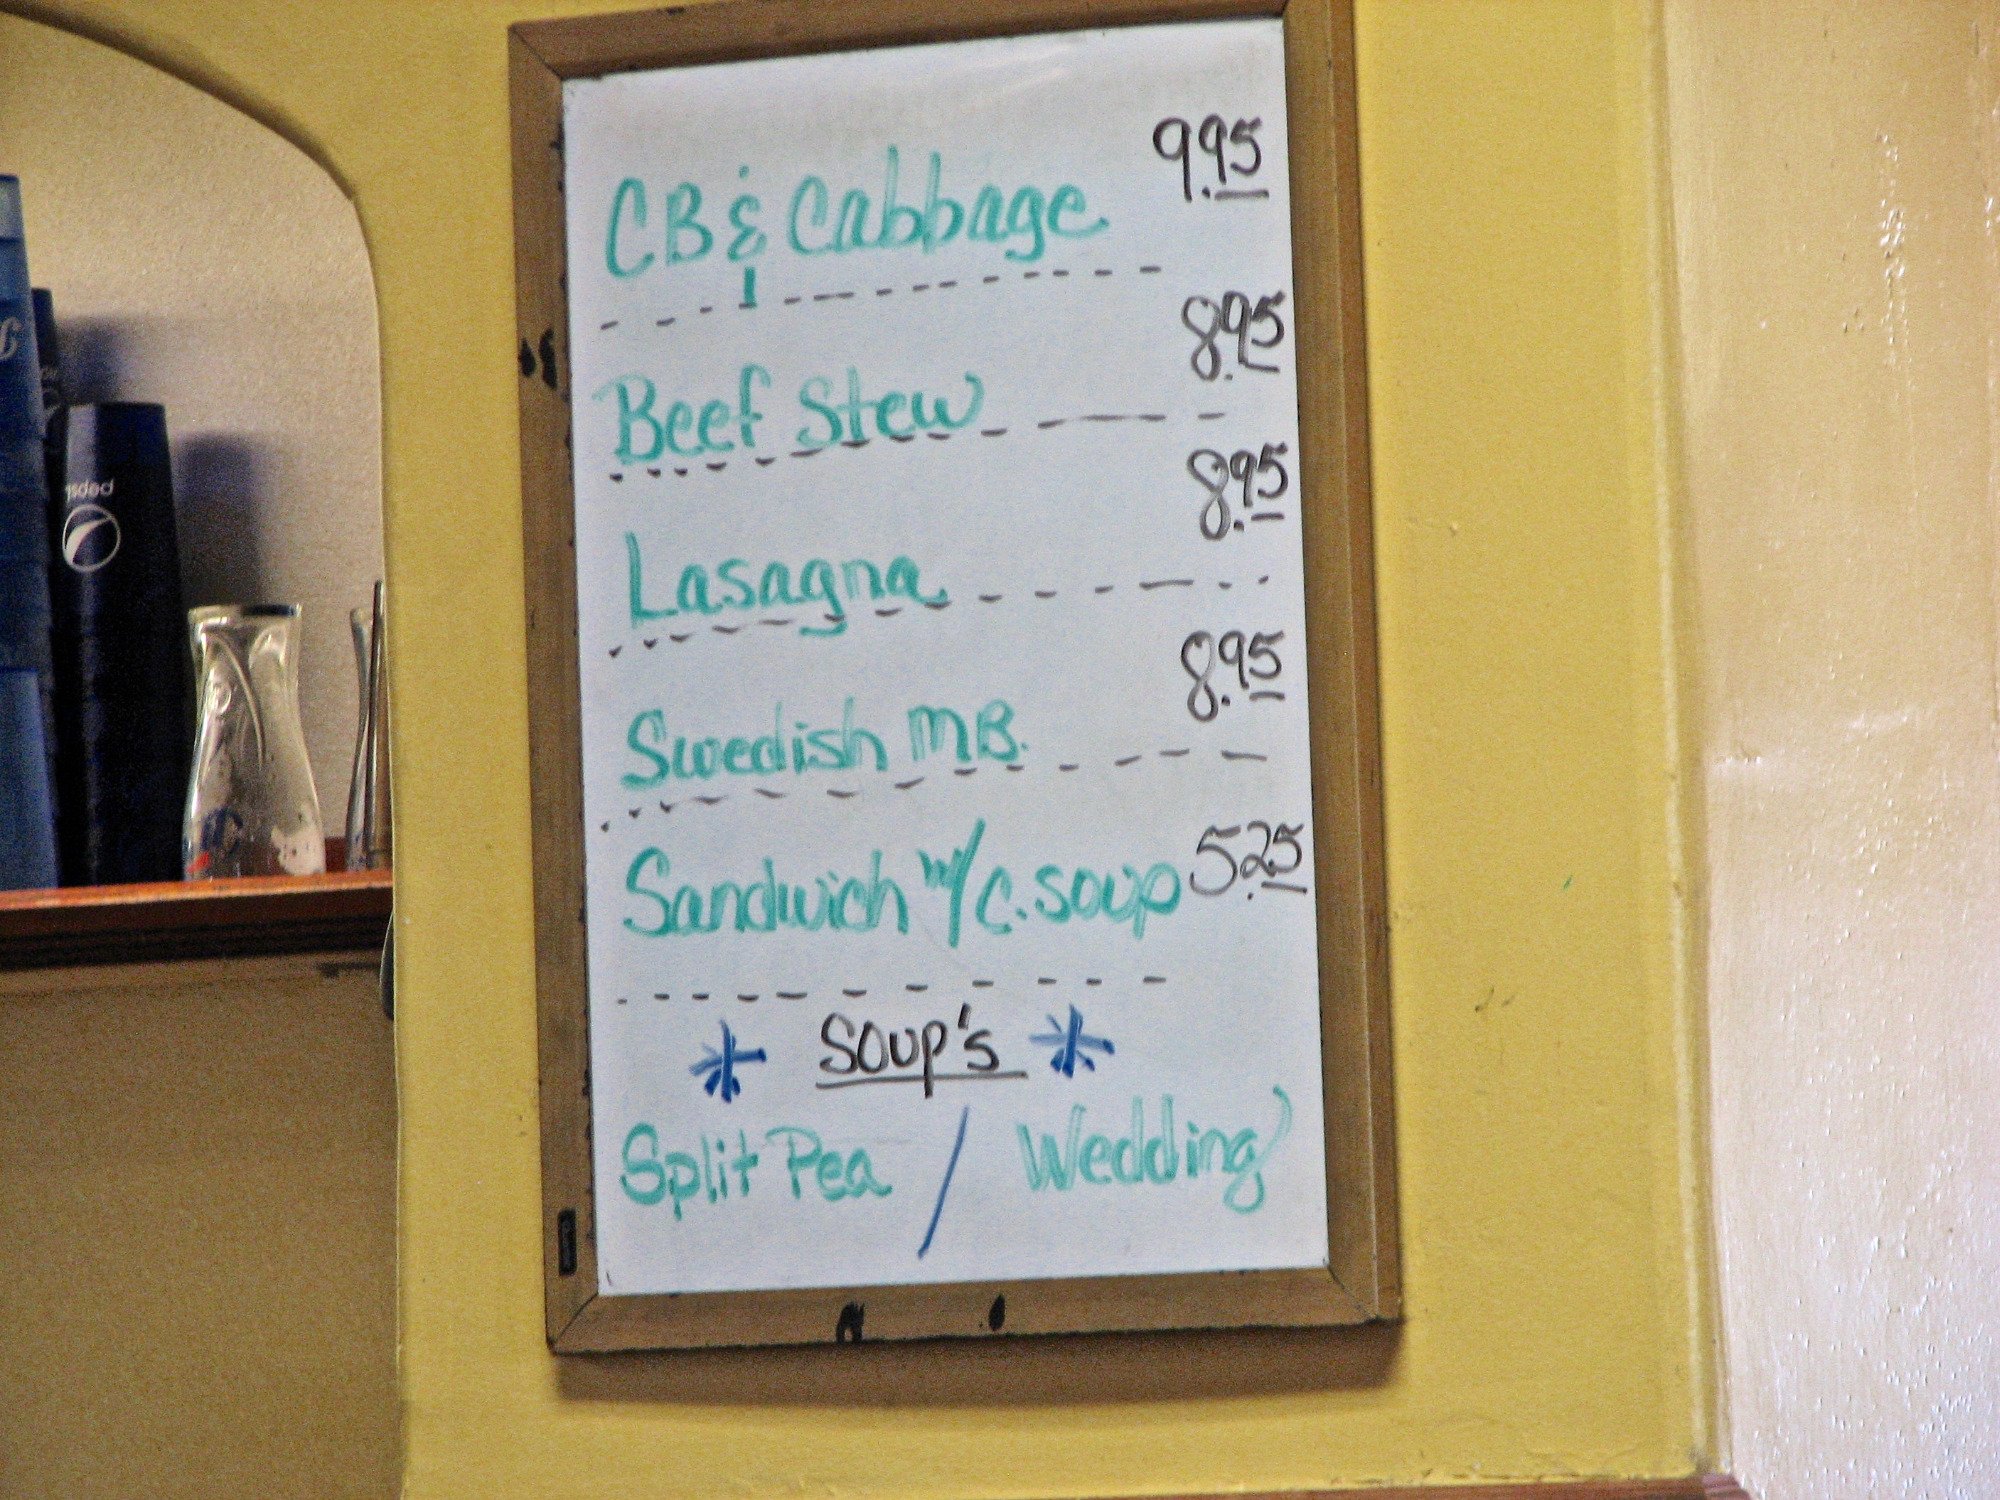 CB & Cabbage 9.95
Beef Stew 8.95
Lasagna 8.95
Swedish MB. 8.95
Sandwich w/ c. soup 5.25
* Soup's *
Split Pea / Wedding
pepsi